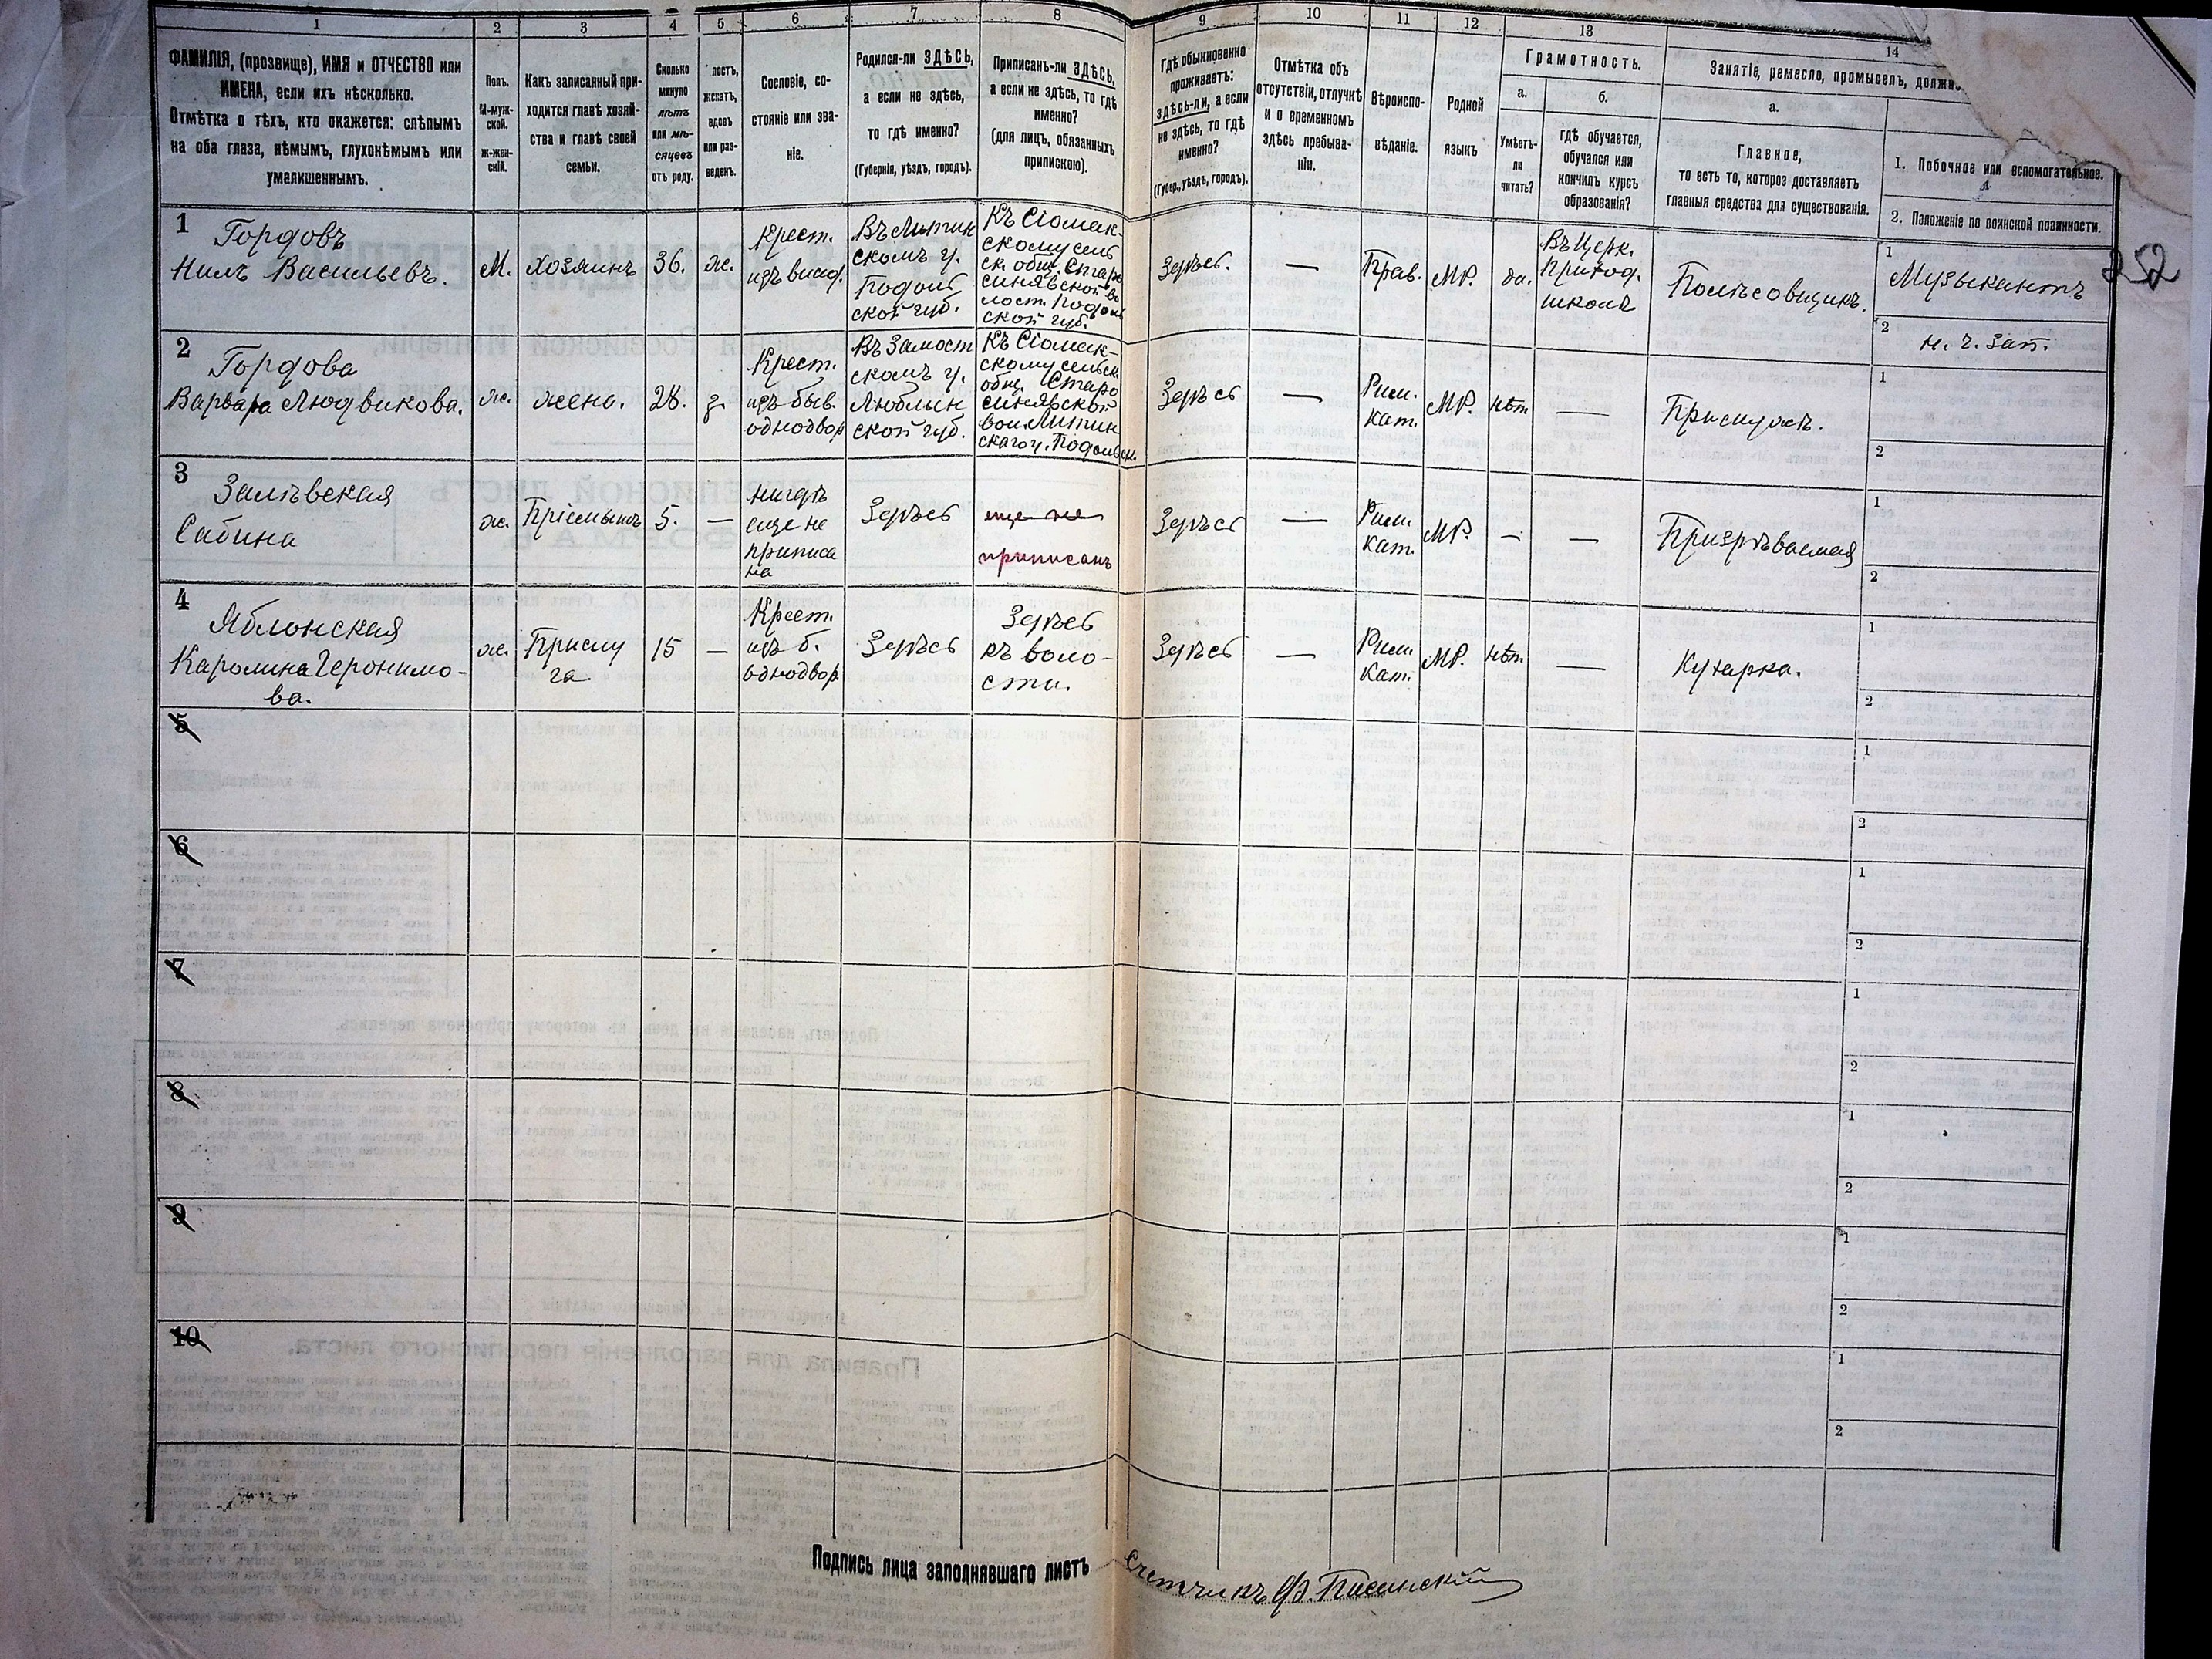 1 2 3 4 5 6 7 8 9 10 11 12 13 14
ФАМИЛІЯ, (прозвище), ИМЯ и ОТЧЕСТВО или
ИМЕНА, если ихъ нѣсколько.
Отмѣтка о тѣхъ, кто окажется: слѣпымъ
на оба глаза, нѣмымъ, глухонѣмымъ или
умалишеннымъ.
Полъ.
М-муж-
ской.
ж-жен-
скій.
Какъ записанный при-
ходится главѣ хозяй-
ства и главѣ своей
семьи.
Сколько
минуло
лѣтъ
или мѣ-
сяцевъ
отъ роду.
лостъ,
женатъ,
вдовъ
или раз-
веденъ.
Сословіе, со-
стояніе или зва-
ніе.
Родился-ли ЗДѢСЬ,
а если не здѣсь,
то гдѣ именно?
(Губернія, уѣздъ, городъ).
Приписанъ-ли ЗДѢСЬ,
а если не здѣсь, то гдѣ
именно?
(для лицъ, обязанныхъ
припискою).
Гдѣ обыкновенно
проживаетъ:
здѣсь-ли, а если
не здѣсь, то гдѣ
именно?
(Губер., уѣздъ, городъ).
Отмѣтка объ
отсутствіи, отлучкѣ
и о временномъ
здѣсь пребыва-
ніи.
Вѣроиспо-
вѣданіе.
Родной
языкъ
Грамотность.
а.
Умѣетъ-
ли
читать?
б.
гдѣ обучается,
обучался или
кончилъ курсъ
образованія?
Занятіе, ремесло, промыселъ, должно
а.
Главное,
то есть то, котороз доставляетъ
главныя средства для существованія.
1. Побочное или вспомогательное.
2. Положеніе по воинской повинности.
252
1
Гордовъ
Нилъ Васильевъ.
М.
Хозяинъ
36.
ж.
Крест.
изъ
Въ Литин
скомъ у.
Подоль
ской губ.
Къ Сіомак-
скому сель
ск. общ. Старо
синявской во
лост. Подоль
ской губ.
Здѣсь.
—
Прав.
МР.
да.
Въ Церк.
Приход.
школѣ
Полѣсовщикъ.
1
Музыкантъ
2
н. ч. зап.
2
Гордова
Варвара Людвикова.
ж.
жена.
28.
з.
Крест.
изъ быв.
однодвор
Въ Замост
скомъ у.
Люблин
ской губ.
Къ Сіомак-
скому сельск.
общ. Старо
синявской
вол. Литин
скаго у. Подольск.
Здѣсь
—
Рим.
кат.
МР.
нѣт
—
При мужѣ.
1
2
3
Залѣвская
Сабина
ж.
Пріемышъ
5.
—
нигдѣ
еще не
приписа
на
Здѣсь
еще не
приписанъ
Здѣсь
—
Рим.
кат.
МР.
—
—
Призрѣваемая
1
2
4
Яблонская
Каролина Геронимо-
ва.
ж.
Прислу
га.
15
—
Крест.
изъ б.
однодвор.
Здѣсь
Здѣсь
къ воло-
сти.
Здѣсь
—
Рим.
кат.
МР.
нѣт.
—
Кухарка.
1
2
5
1
2
6
1
2
7
1
2
8
1
2
9
1
2
10
1
2
Подпись лица заполнявшаго листъ
Счетчикъ Ф.